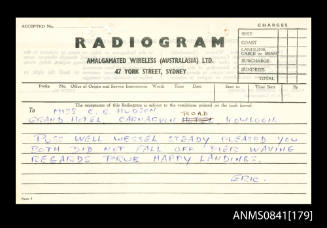 ACCEPTED No.
CHARGES
RADIOGRAM
AMALGAMATED WIRELESS (AUSTRALASIA) LTD.
47 YORK STREET, SYDNEY
SHIP
COAST
LANDLINE
CABLE or BEAM
SURCHARGE
SUNDRIES
TOTAL
Prefix No. Office of Origin and Service Instructions Words Time Date Sent to Time Sent By
The transmission of this Radiogram is subject to the conditions printed on the back hereof.
To MISS C. E. HUDSON
ROAD
GRAND HOTEL, CARNARVON KOWLOON.
PUSS WELL VESSEL STEADY PLEASED YOU
BOTH DID NOT FALL OFF PIER WAVING
REGARDS HAPPY LANDINGS.
ERIC.
ANMS0841[179]